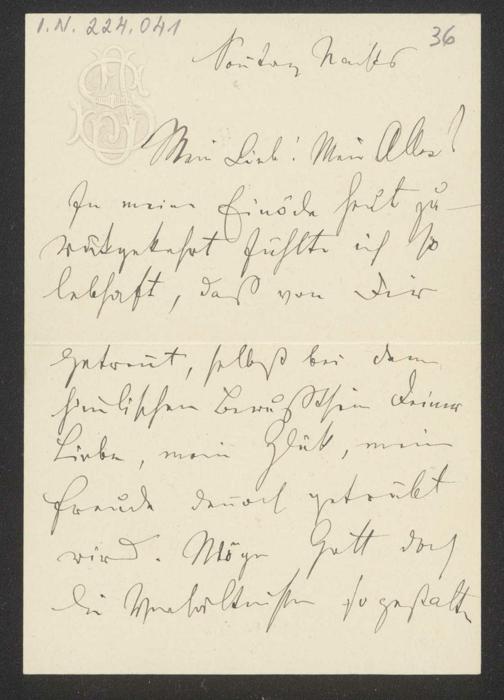 I.N. 224.041
36
Sontag Nachts
Mein Lieb! Mein Alles!
In meine Einöde heut zu-
rükgekehrt fühlte ich so
lebhaft, daß von Dir
getrennt, selbst bei dem
himlischen Bewußtsein Deiner
Liebe, mein Glük, meine
Freude dennoch getrübt
wird. Möge Gott doch
die Verhältnisse so gestalten